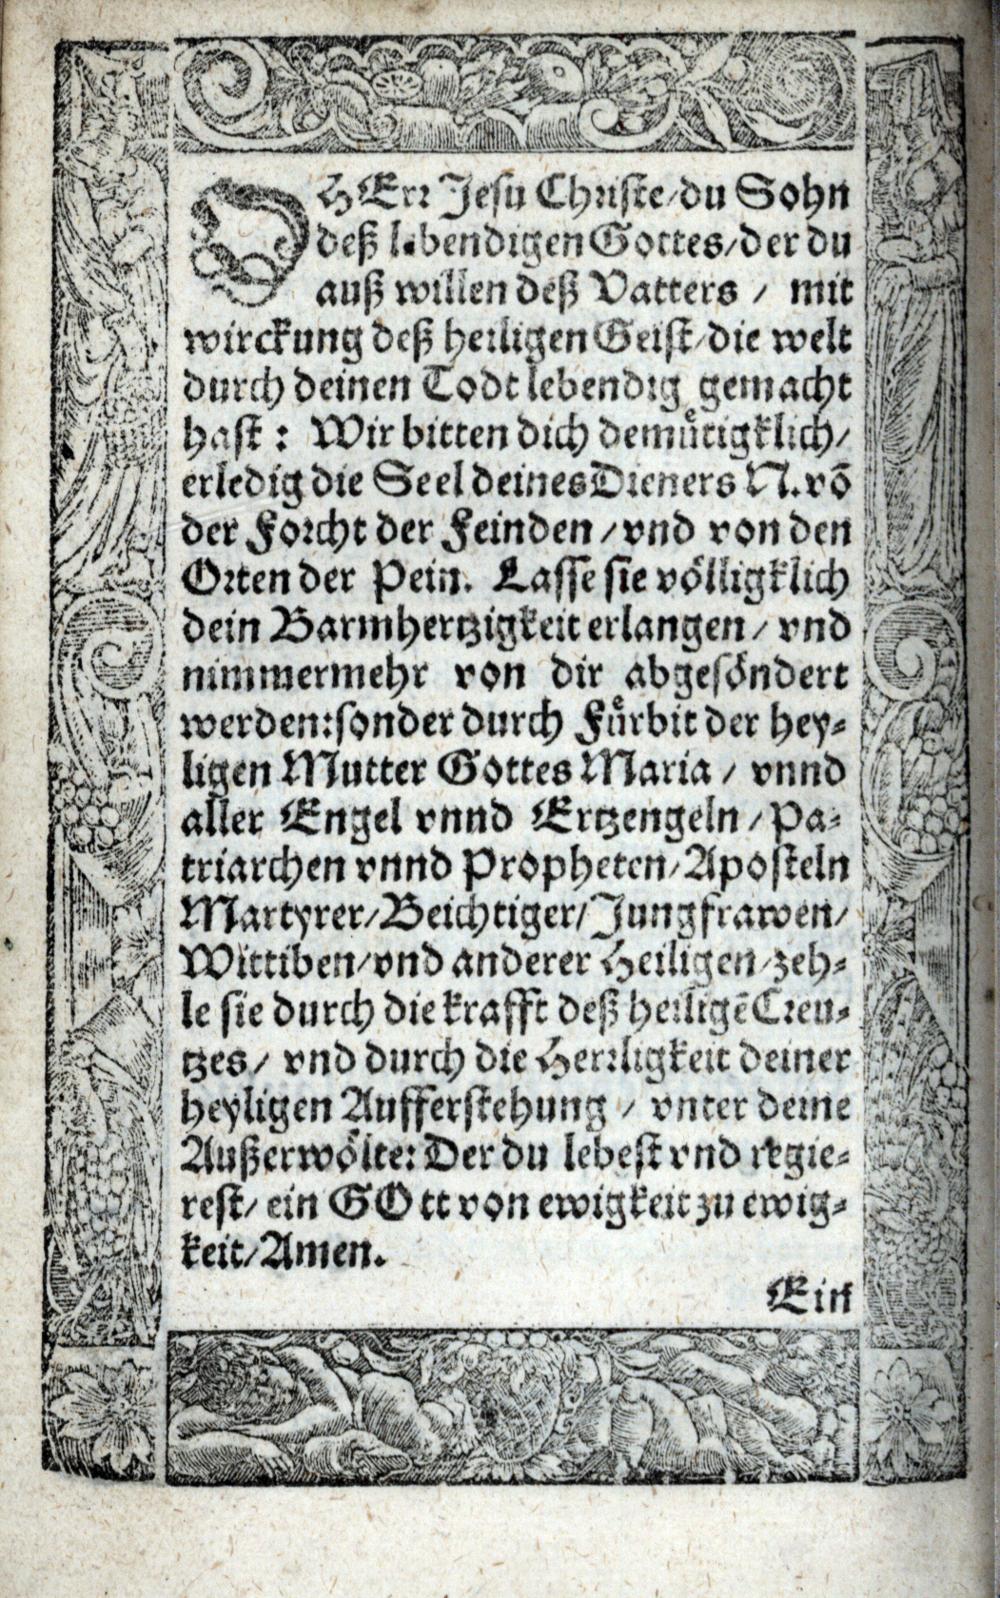 O HErr Jesu Christe/du Sohn
deß lebendigen Gottes/der du
auß willen deß Vatters / mit
wirckung deß heiligen Geist/die welt
durch deinen Todt lebendig gemacht
hast : Wir bitten dich demuͤtigklich/
erledig die Seel deines Dieners N. võ
der Forcht der Feinden /vnd von den
Orten der Pein. Lasse sie voͤlligklich
dein Barmhertzigkeit erlangen / vnd
nimmermehr von dir abgesoͤndert
werden:sonder durch Fuͤrbit der hey-
ligen Mutter Gottes Maria / vnnd
aller Engel vnnd Ertzengeln / Pa-
triarchen vnnd Propheten/Aposteln
Martyrer/Beichtiger/Jungfrawen/
Wittiben/vnd anderer Heiligen/zeh-
le sie durch die krafft deß heiligẽ Creu-
tzes / vnd durch die Herrligkeit deiner
heyligen Aufferstehung / vnter deine
Außerwoͤlte: Der du lebest vnd regie-
rest/ ein GOtt von ewigkeit zu ewig-
keit/Amen.
Ein